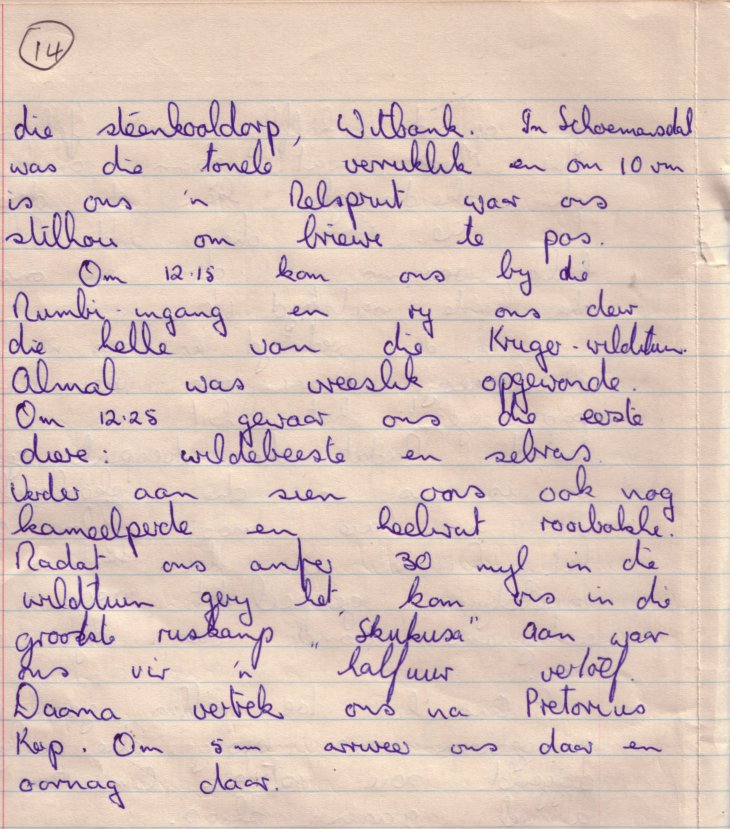 14
die steenkooldorp, Witbank. In Schoemansdal
was die tonele verruklik en om 10 vm
is ons 'n Nelspruit waar ons
stilhou om briewe te pos.
Om 12.15 kom ons by die
Numbi-ingang en ry ons deur
die helle van die Kruger-wildtuin.
Almal was vreeslik opgewonde.
Om 12.25 gewaar ons die eerste
diere: wildebeeste en sebras.
Verder aan sien ons ook nog
kameelperde en heelwat rooibokke.
Nadat ons amper 30 myl in die
wildtuin gery het, kom ons in die
grootste ruskamp "Skukusa" aan waar
ons vir 'n halfuur vertoef.
Daarna vertrek ons na Pretorius
Kop. Om 5 nm arriveer ons daar en
oornag daar.